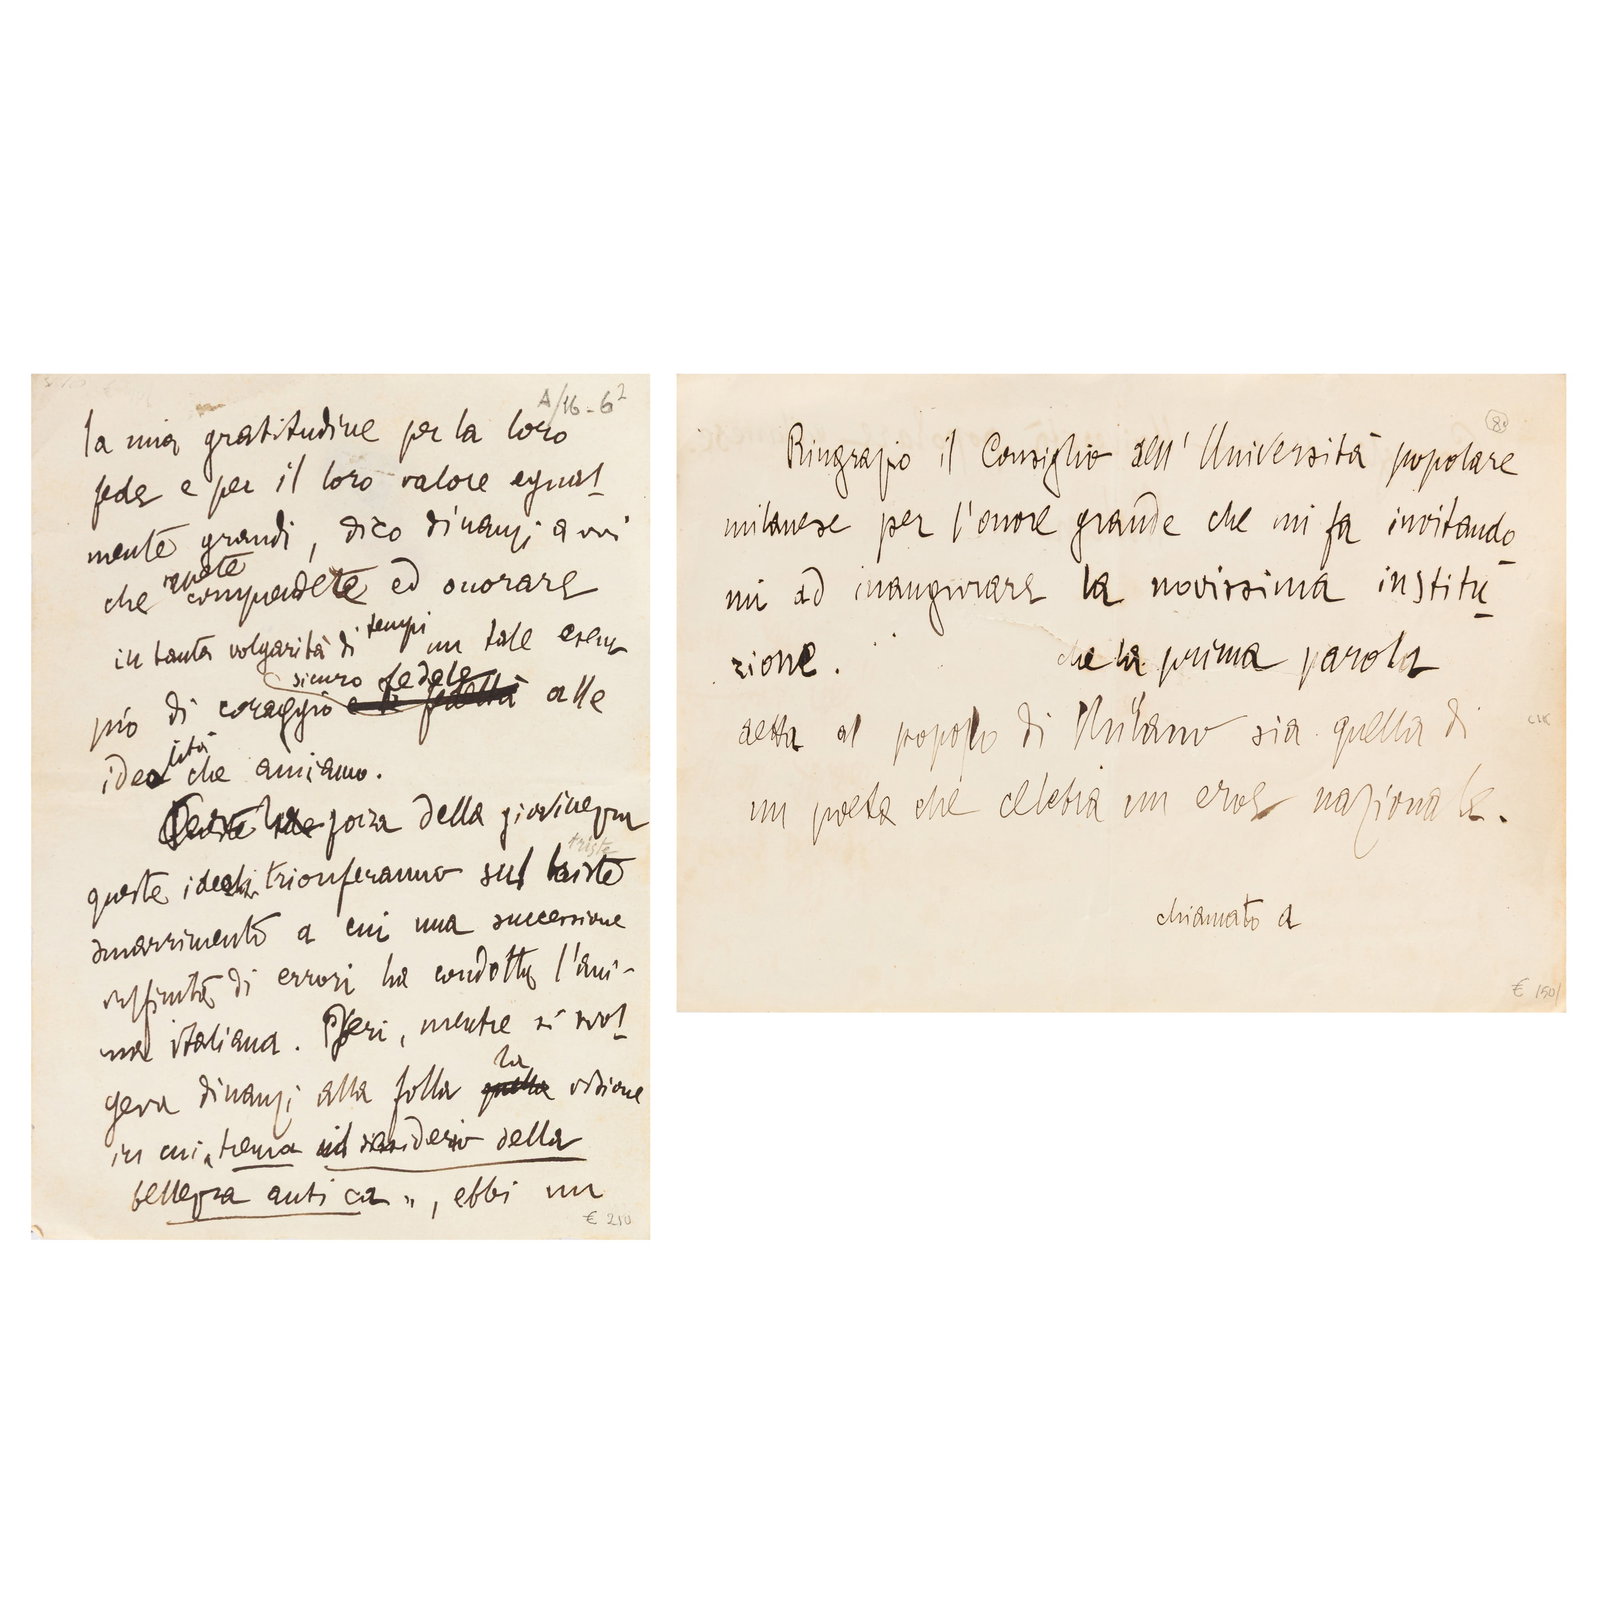 A/16-6²
la mia gratitudine per la loro
fede e per il loro valore egual-
mente grandi, dico dinanzi a voi
che sapete
comprendete ed onorare
in tanta volgarità di tempi un tale esem
pio di coraggio sicuro fedele alle
idealità che amiamo.
forza della giovinezza
triste
queste idealità trionferanno sul triste
smarrimento a cui una successione
di errori ha condotto l'ani-
ma italiana. Ieri, mentre si svol-
la
geva dinanzi alla folla quella visione
in cui „trema il desiderio della
bellezza antica", ebbi un
€ 210
8
Ringrazio il Consiglio dell'Università popolare
milanese per l'onore grande che mi fa invitando
mi ad inaugurare la novissima institu-
zione. che la prima parola
detta al popolo di Milano sia quella di
un poeta che celebra un eroe nazionale.
chiamato a
€ 150/